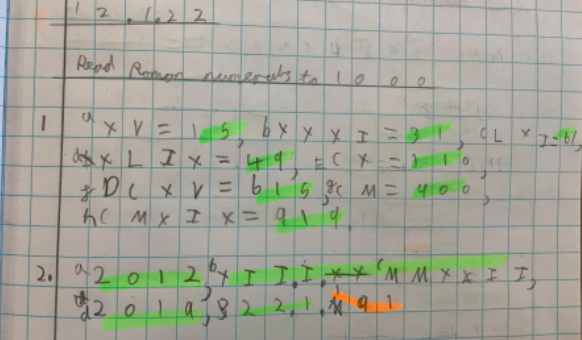 12.1.22
Read Roman numerals to 1000
1 a XV = 15, b XXXI = 31, c LXI = 61,
d XLIX = 49, CX = 110,
f DCXV = 615, g CM = 900,
h CMXIX = 919.
2. a 2012, b XIII. c MMXXII,
d 2019, 8 22.1. 91